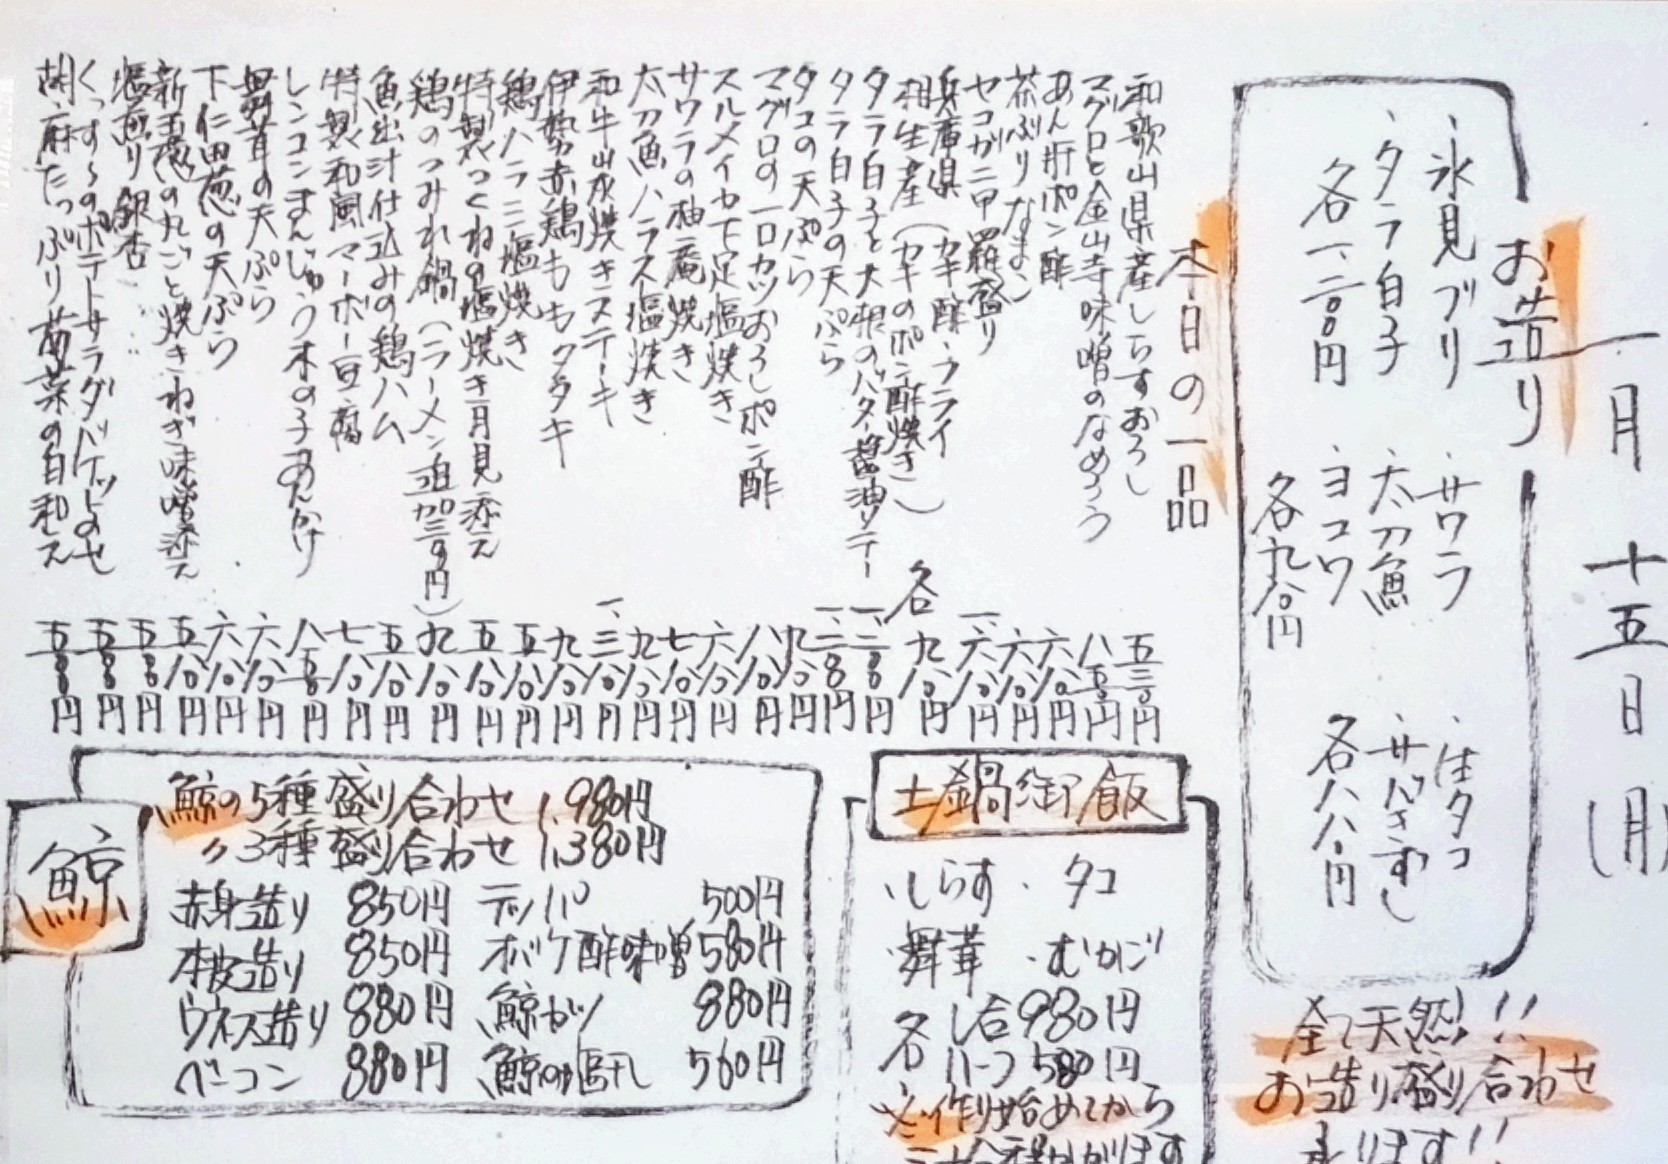 一月 十五日 (月)
お造り
・氷見ブリ
・タラ白子
各一、二〇〇円
・サワラ
・太刀魚
・ヨコワ
各九八〇円
・生タコ
・サバきずし
各八八〇円
全て天然!!!
お造り盛り合わせ
承ります!!
本日の一品
和歌山県産しらすおろし 五三〇円
マグロと金山寺味噌のなめろう 八五〇円
あん肝ポン酢 六八〇円
茶ぶりなまこ 六八〇円
セコガニ甲羅盛り 一、六八〇円
兵庫県 (カキ酢・フライ
相生産 (カキのポン酢焼き) 各九八〇円
タラ白子と大根のバター醤油ソテー 一、二〇〇円
タラ白子の天ぷら 一、二〇〇円
タコの天ぷら 九八〇円
マグロの一口カツおろしポン酢 八八〇円
スルメイカ下足塩焼き 六八〇円
サワラの柚庵焼き 七八〇円
太刀魚ハラス塩焼き 九八〇円
和牛山灰焼きステーキ 一、三八〇円
伊勢赤鶏ももタタキ 九八〇円
鶏ハラミ塩焼き 五八〇円
特製つくねの塩焼き月見添え 五八〇円
鶏のつみれ鍋(ラーメン追加三〇〇円) 九八〇円
魚出汁仕込みの鶏ハム 五八〇円
特製和風マーボー豆腐 七八〇円
レンコンまんじゅう木の子あんかけ 八五〇円
舞茸の天ぷら 六八〇円
下仁田葱の天ぷら 六八〇円
新玉葱の丸ごと焼きねぎ味噌添え 五八〇円
塩煎り銀杏 五〇〇円
くっすーのポテトサラダバケットのせ 五〇〇円
胡麻たっぷり菊菜の白和え 五〇〇円
土鍋御飯
・しらす ・タコ
・舞茸 ・むかご
各 1合980円
ハーフ580円
※作り始めてから
三十分程かかります
鯨
鯨の5種盛り合わせ 1,980円
〃3種盛り合わせ 1,380円
赤身造り 850円 テッパ 500円
本皮造り 850円 オバケ酢味噌 580円
ウネス造り 880円 鯨カツ 880円
ベーコン 880円 鯨の塩干し 560円